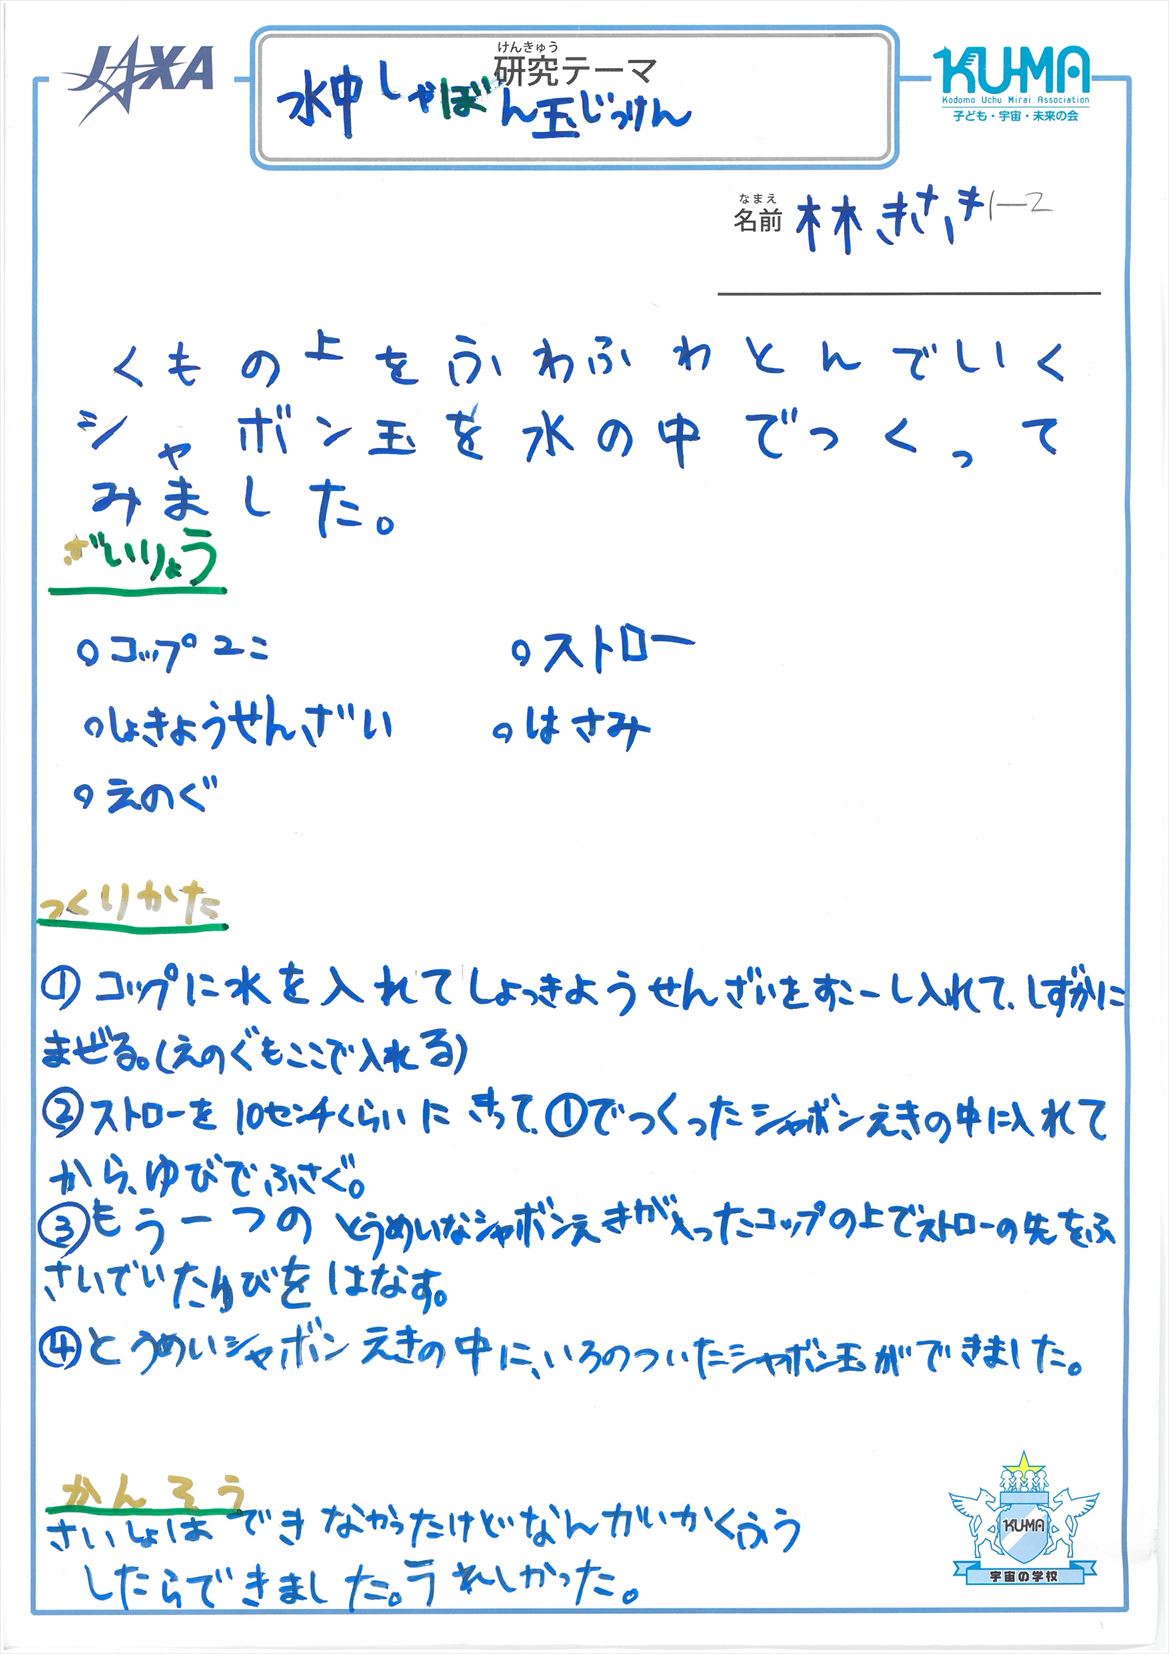 JAXA
けんきゅう
研究テーマ
水中しゃぼん玉じっけん
KU-MA
Kodomo Uchu Mirai Association
子ども・宇宙・未来の会
なまえ
名前 林きさき 1-2
くもの上をふわふわとんでいく
シャボン玉を水の中でつくって
みました。
ざいりょう
○コップ2こ ○ストロー
○しょきょうせんざい ○はさみ
○えのぐ
つくりかた
①コップに水を入れてしょっきようせんざいをすこーし入れて、しずかに
まぜる。(えのぐもここで入れる)
②ストローを10センチくらいにきって、①でつくったシャボンえきの中に入れて
から、ゆびでふさぐ。
③もう一つのとうめいなシャボンえきが入ったコップの上でストローの先をふ
さいでいたゆびをはなす。
④とうめいシャボンえきの中に、いろのついたシャボン玉ができました。
かんそう
さいしょはできなかったけどなんかいかくふう
したらできました。うれしかった。
KU-MA
宇宙の学校